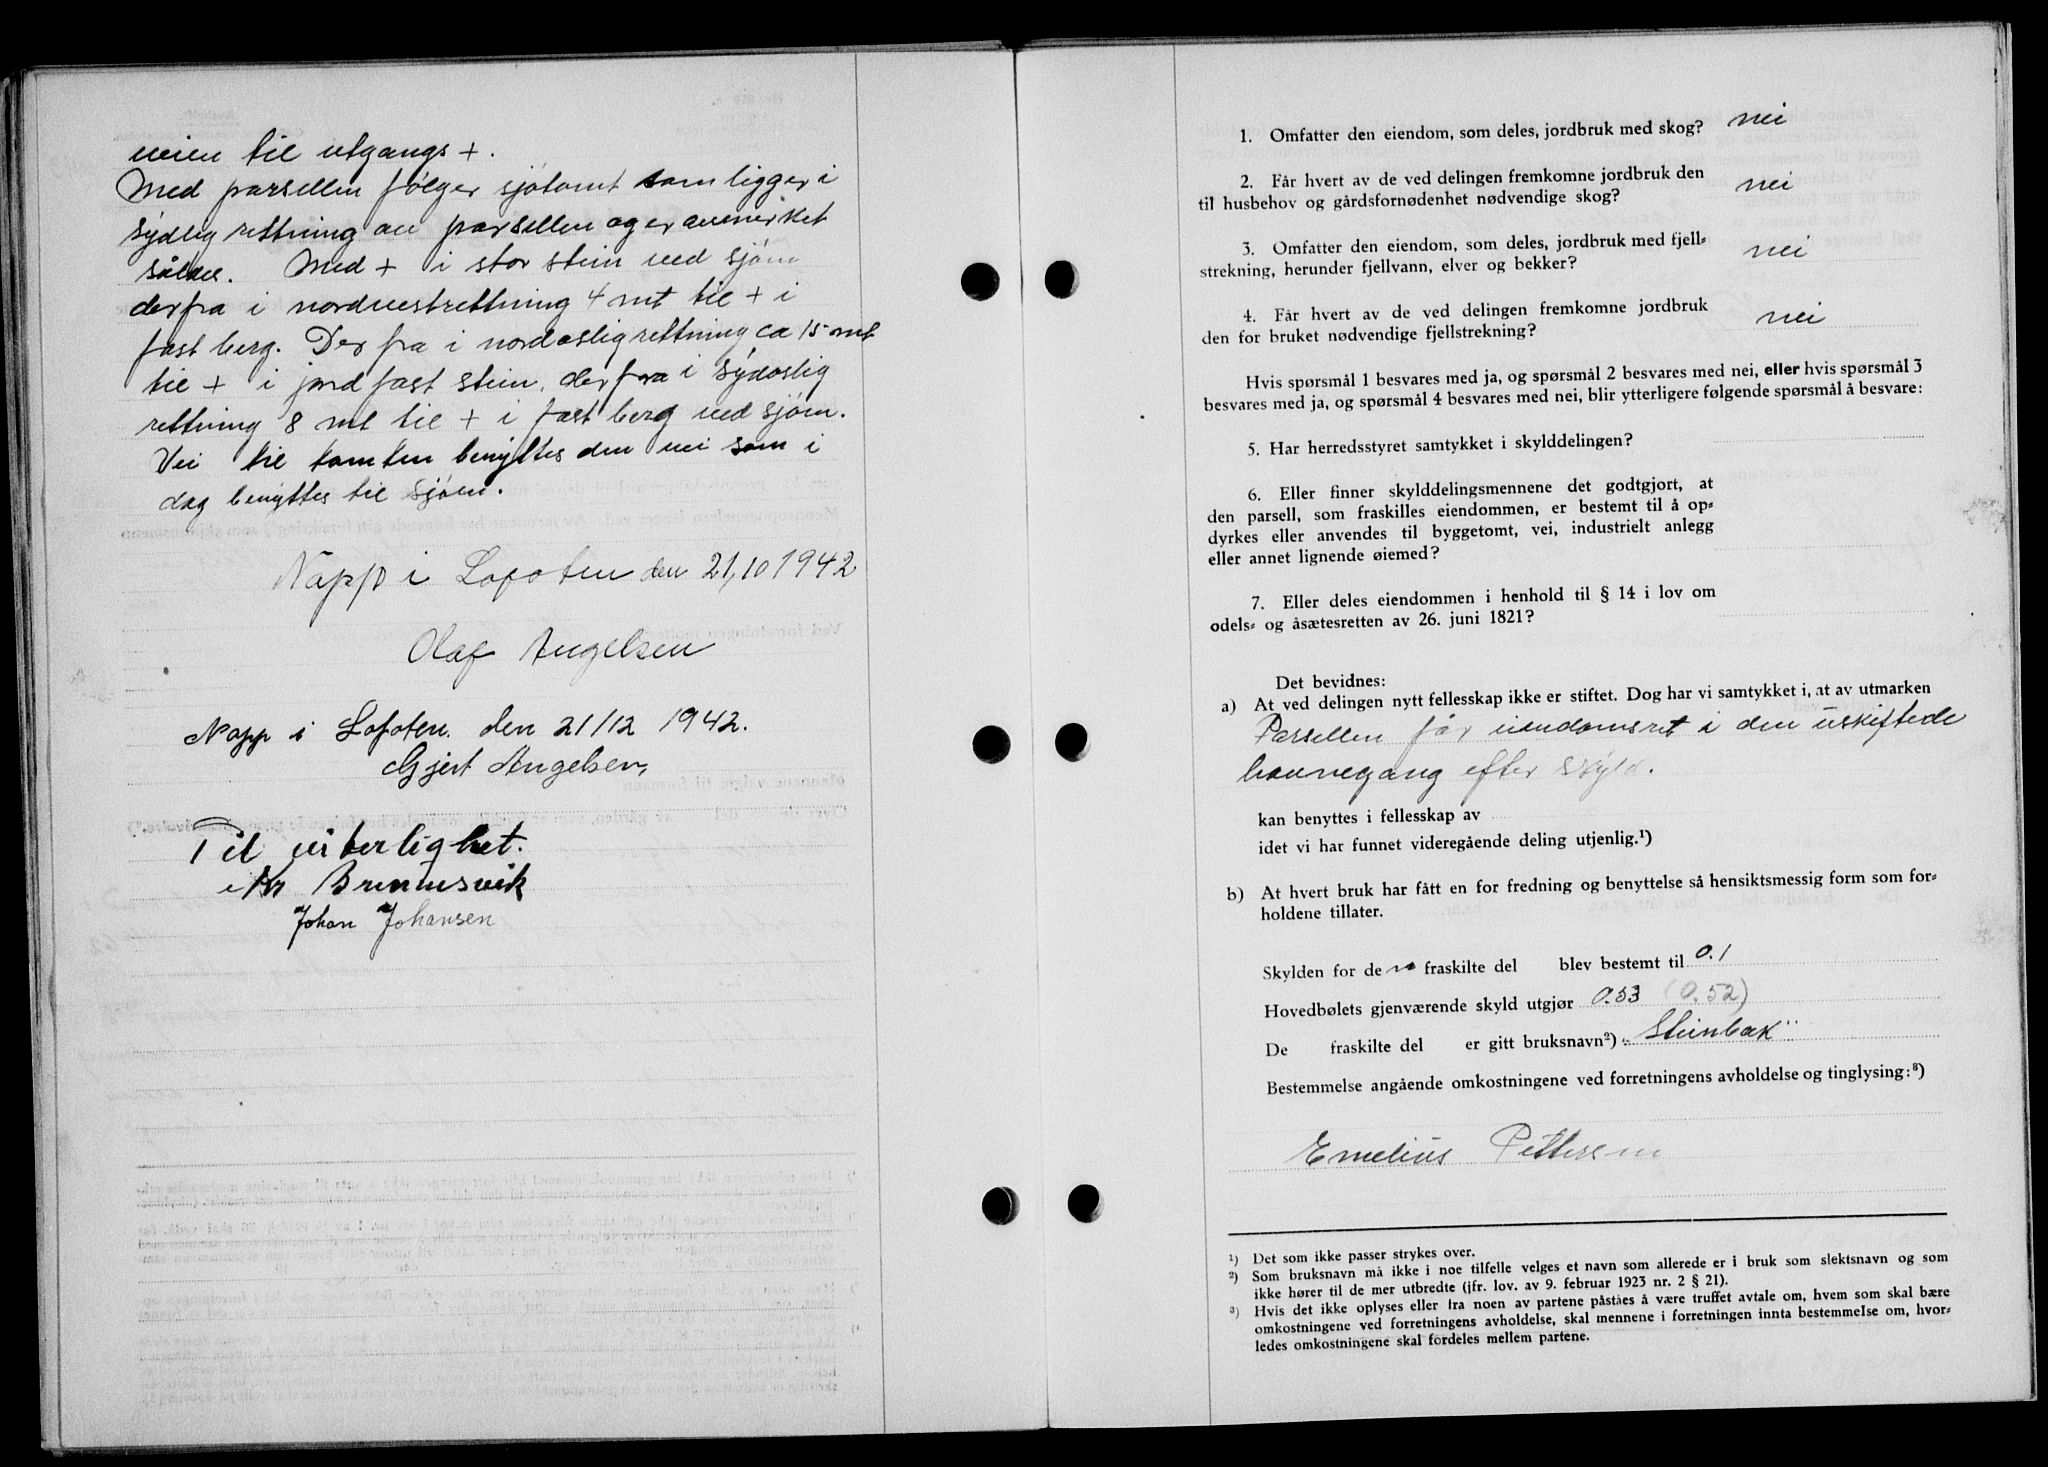 veien til utgangs +.
Med parsellen følger sjøtomt som ligger i
sydlig rettning av parsellen og er avmerket
således. Med + i stor stein ved sjøen
derfra i nordvestrettning 4 mt til + i
fast berg. Der fra i nordøstlig rettning ca 15 mt
til + i jord fast stein, derfra i sydøstlig
rettning 8 mt til + i fast berg ved sjøen.
Vei til tomten benyttes den vei som i
dag benyttes til sjøen.
Napp i Lofoten den 21,10 1942
Olaf Angelsen
Napp i Lofoten. den 21/12 1942.
Gjert Angelsen,
Til viterlighet.
Kr Brunnesvik
Johan Johansen
1. Omfatter den eiendom, som deles, jordbruk med skog? nei
2. Får hvert av de ved delingen fremkomne jordbruk den
til husbehov og gårdsfornødenhet nødvendige skog? nei
3. Omfatter den eiendom, som deles, jordbruk med fjell-
strekning, herunder fjellvann, elver og bekker? nei
4. Får hvert av de ved delingen fremkomne jordbruk
den for bruket nødvendige fjellstrekning? nei
Hvis spørsmål 1 besvares med ja, og spørsmål 2 besvares med nei, eller hvis spørsmål 3
besvares med ja, og spørsmål 4 besvares med nei, blir ytterligere følgende spørsmål å besvare:
5. Har herredsstyret samtykket i skylddelingen?
6. Eller finner skylddelingsmennene det godtgjort, at
den parsell, som fraskilles eiendommen, er bestemt til å op-
dyrkes eller anvendes til byggetomt, vei, industrielt anlegg
eller annet lignende øiemed?
7. Eller deles eiendommen i henhold til § 14 i lov om
odels- og åsætesretten av 26. juni 1821?
Det bevidnes:
a) At ved delingen nytt fellesskap ikke er stiftet. Dog har vi samtykket i, at av utmarken
Parsellen får eiendomsret i den uskiftede
havnegang efter skyld.
kan benyttes i fellesskap av
idet vi har funnet videregående deling utjenlig.¹)
b) At hvert bruk har fått en for fredning og benyttelse så hensiktsmessig form som for-
holdene tillater.
Skylden for den fraskilte del blev bestemt til 0.1
Hovedbølets gjenværende skyld utgjør 0.53 (0.52)
De fraskilte del er gitt bruksnavn²) „Steinbak"
Bestemmelse angående omkostningene ved forretningens avholdelse og tinglysing:³)
Emelius Pettersen
¹) Det som ikke passer strykes over.
²) Som bruksnavn må ikke i noe tilfelle velges et navn som allerede er i bruk som slektsnavn og som
ikke hører til de mer utbredte (jfr. lov. av 9. februar 1923 nr. 2 § 21).
³) Hvis det ikke oplyses eller fra noen av partene påståes å være truffet avtale om, hvem som skal bære
omkostningene ved forretningens avholdelse, skal mennene i forretningen innta bestemmelse om, hvor-
ledes omkostningene skal fordeles mellem partene.